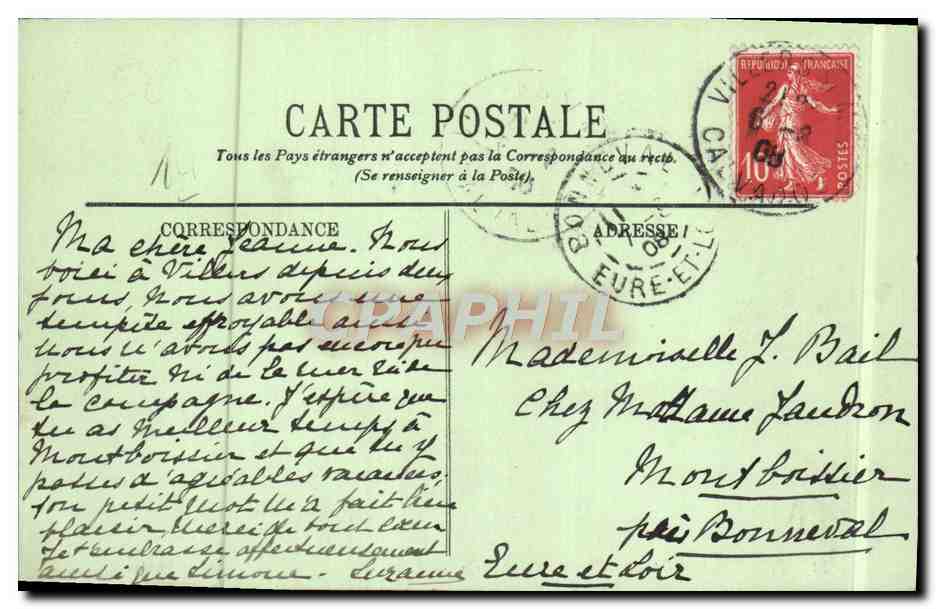 CARTE POSTALE
Tous les Pays étrangers n'acceptent pas la Correspondance au recto.
(Se renseigner à la Poste).
CORRESPONDANCE
Ma chère Jeanne. Nous
voici à Villers depuis deux
jours, nous avons une
tempête effroyable aussi
nous n'avons pas encore pu
profiter ni de la mer ni de
la campagne. J'espère que
tu as meilleur temps à
Montboissier et que tu y
passes d'agréables vacances.
Ton petit mot m'a fait bien
plaisir, merci de tout cœur
Je t'embrasse affectueusement
ainsi que Simone. Suzanne
ADRESSE
Mademoiselle J. Bail
Chez Madame Jaudron
Montboissier
près Bonneval
Eure et Loir
REPUBLIQUE FRANÇAISE
10
POSTES
VILLERS
CALVADOS
08
BONNEVAL
11
08
EURE-ET-LOIR
CPAPHIL